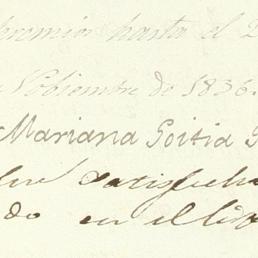 premios hasta el
Nobiembre de 1836.
Mariana Goitia
satisfecha
do en el